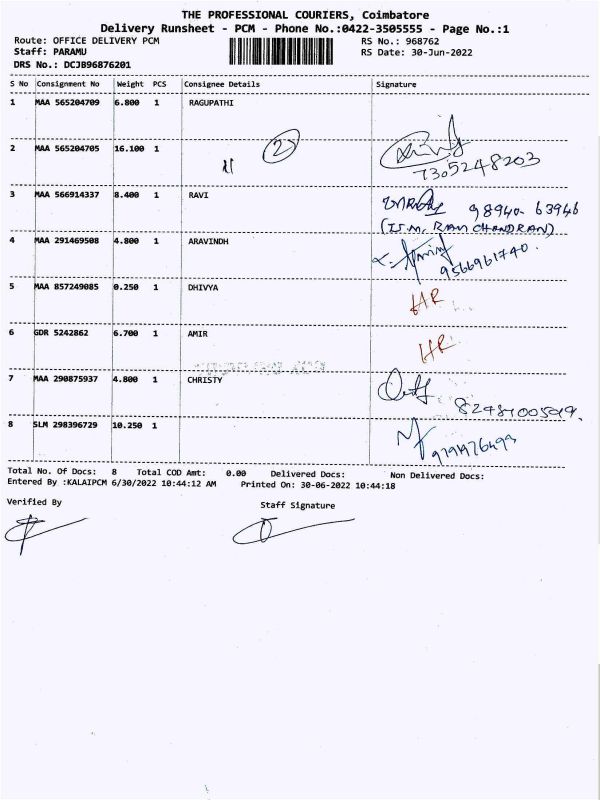 THE PROFESSIONAL COURIERS, Coimbatore
Delivery Runsheet - PCM - Phone No.:0422-3505555 - Page No.:1
Route: OFFICE DELIVERY PCM RS No.: 968762
Staff: PARAMU RS Date: 30-Jun-2022
DRS No.: DCJB96876201
S No Consignment No Weight PCS Consignee Details Signature
1 MAA 565204709 6.800 1 RAGUPATHI
2 MAA 565204705 16.100 1 2
7305248203
3 MAA 566914337 8.400 1 RAVI 98940-63946
(IS.M. RAM CHANDRAN)
4 MAA 291469508 4.800 1 ARAVINDH
9566961740.
5 MAA 857249085 0.250 1 DHIVYA HR
6 GDR 5242862 6.700 1 AMIR HR
7 MAA 290875937 4.800 1 CHRISTY
8 SLM 298396729 10.250 1
Total No. Of Docs: 8 Total COD Amt: 0.00 Delivered Docs: Non Delivered Docs:
Entered By :KALAIPCM 6/30/2022 10:44:12 AM Printed On: 30-06-2022 10:44:18
Verified By Staff Signature